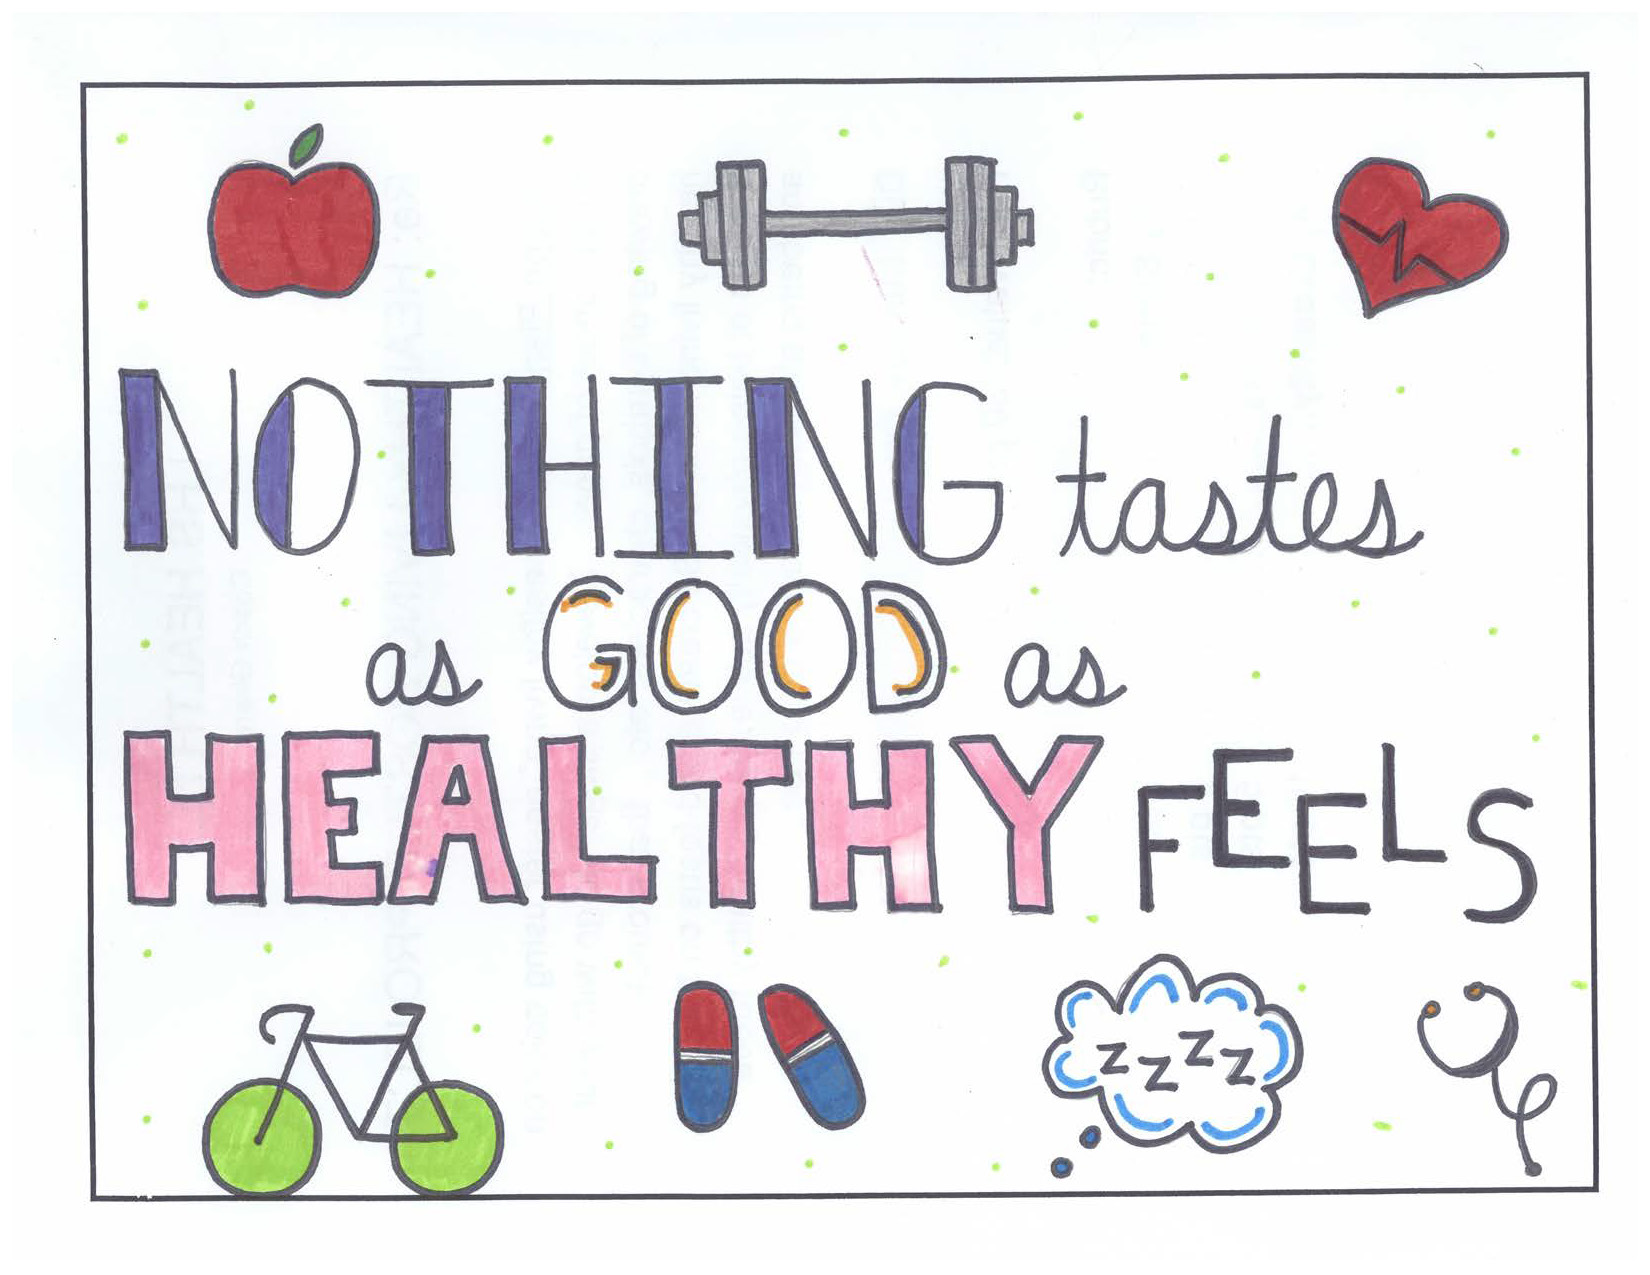 NOTHING tastes
as GOOD as
HEALTHY FEELS
z z z z